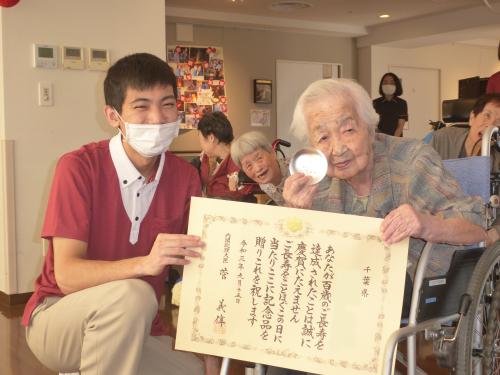 千葉県
あなたが百歳のご長寿を
達成されたことは誠に
慶賀にたえません
ご長寿をことほぐこの日に
当たりここに記念品を
贈りこれを祝します
令和三年九月十五日
内閣総理大臣 菅 義偉